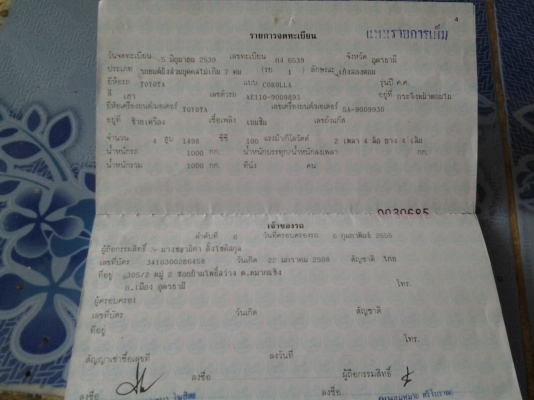 4
รายการจดทะเบียน
แทนรายการเดิม
วันจดทะเบียน 5 มิถุนายน 2539 เลขทะเบียน 04 6539 จังหวัด อุดรธานี
ประเภท รถยนต์นั่งส่วนบุคคลไม่เกิน 7 คน (รย 1 ) ลักษณะ เก๋งสองตอน
ยี่ห้อรถ TOYOTA แบบ COROLLA รุ่นปี ค.ศ.
สี เทา เลขตัวรถ AE110-9009893 อยู่ที่
ยี่ห้อเครื่องยนต์/มอเตอร์ TOYOTA เลขเครื่องยนต์/มอเตอร์ 5A-9009930
อยู่ที่ เชื้อเพลิง เบนซิน เลขถังแก๊ส
จำนวน 4 สูบ 1498 ซีซี 100 แรงม้า/กิโลวัตต์ 2 เพลา 4 ล้อ ยาง 4 เส้น
น้ำหนักรถ 1000 กก. น้ำหนักบรรทุก/น้ำหนักลงเพลา กก.
น้ำหนักรวม 1000 กก. ที่นั่ง คน
0030685
เจ้าของรถ
ลำดับที่ วันที่ครอบครองรถ 6 กุมภาพันธ์ 2555
ผู้ถือกรรมสิทธิ์
เลขที่บัตร วันเกิด 22 มกราคม 2508 สัญชาติ ไทย
ที่อยู่ 305/2 หมู่ 2 ต.หมากแข้ง
อ.เมือง อุดรธานี โทร.
ผู้ครอบครอง
เลขที่บัตร วันเกิด สัญชาติ
ที่อยู่
โทร.
สัญญาเช่าซื้อเลขที่ ลงวันที่
ลงชื่อ ผู้ถือกรรมสิทธิ์
ลงชื่อ